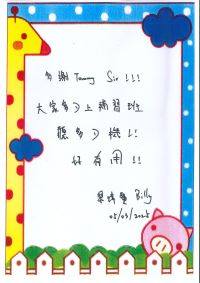 多謝 Tammy Sir!!!
大家多D上補習班
聽多D機!!
好有用!!
Billy
05/03/2025